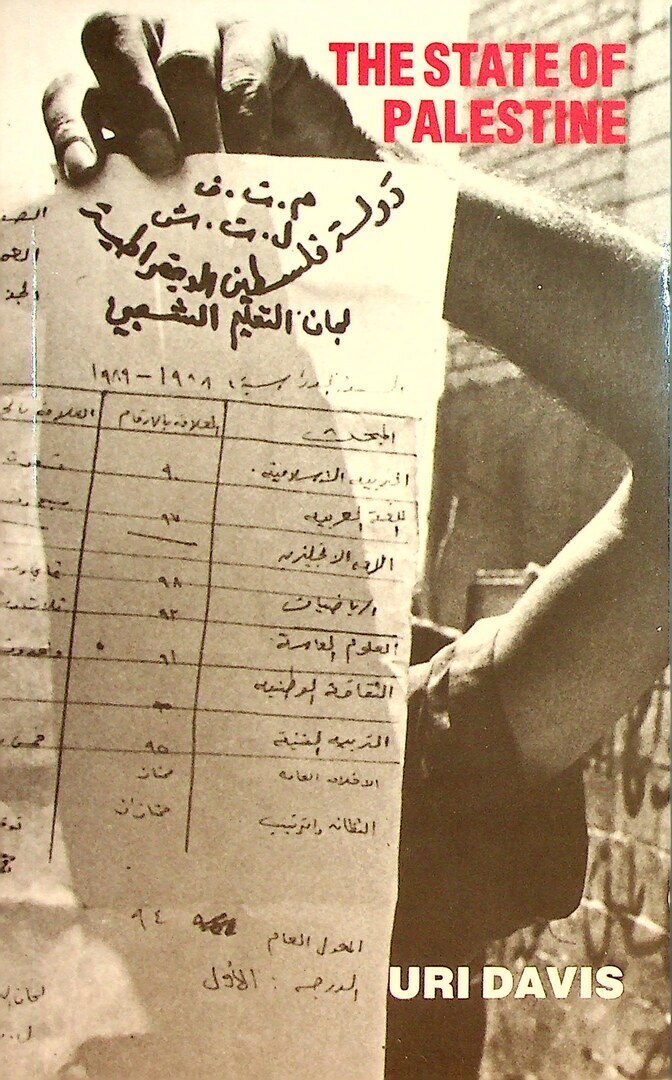 THE STATE OF
PALESTINE
م.ت.ف
ل.ت.ش
دولة فلسطين الديمقراطية
لجان التعليم الشعبي
١٩٨٨ - ١٩٨٩
المبحث العلامة بالأرقام العلامة
التربيه الاسلاميه ٩٠
اللغة العربيه ٩٧
اللغه الانجليزيه
الرياضيات ٩٨
العلوم العامة ٩٢
الثقافة الوطنيه ٩١
التربيه الفنية ٩٥
الاخلاق العامه ممتاز
النظافه والترتيب ممتاز
المعدل العام ٩٤
الدرجه : الأول
URI DAVIS